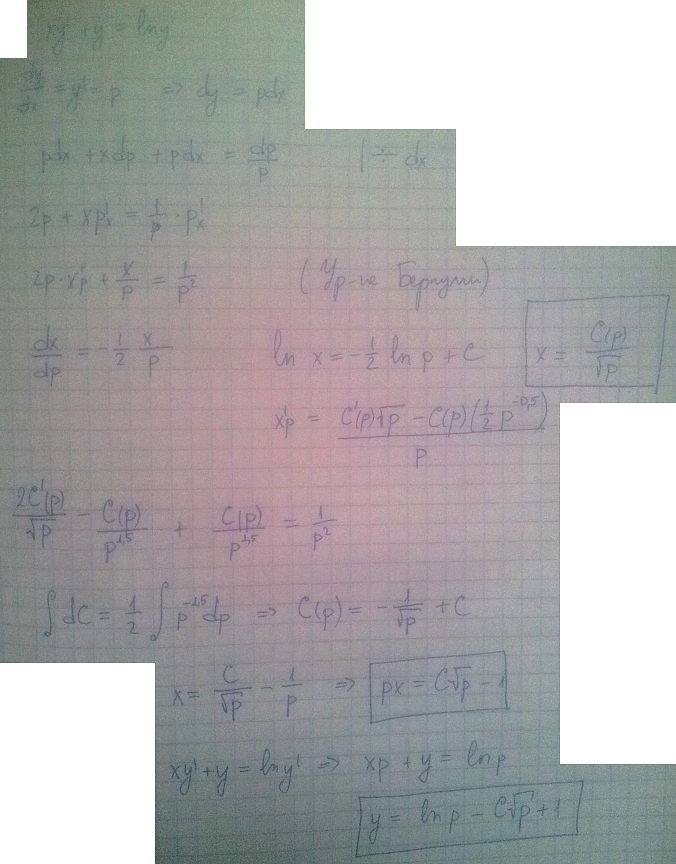 xy' + y = lny'
dy/dx = y' = p ⇒ dy = pdx
pdx + xdp + pdx = dp/p | ÷ dx
2p + xp'ₓ = 1/p · p'ₓ
2p·x'p + x/p = 1/p² (Ур-ие Бернули)
dx/dp = -1/2 x/p ln x = -1/2 ln p + C x = C(p)/√p
x'p = (C'(p)√p - C(p)(1/2 p^-0,5))/p
2C'(p)/√p - C(p)/p^1,5 + C(p)/p^1,5 = 1/p²
∫dC = 1/2 ∫p^-1,5 dp ⇒ C(p) = -1/√p + C
x = C/√p - 1/p ⇒ px = C√p - 1
xy' + y = lny' ⇒ xp + y = lnp
y = lnp - C√p + 1